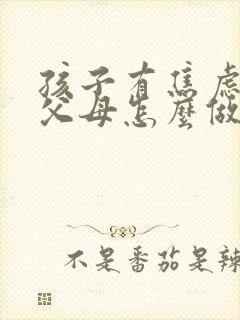 孩子有焦虑
父母怎麼做
不是番茄是辣